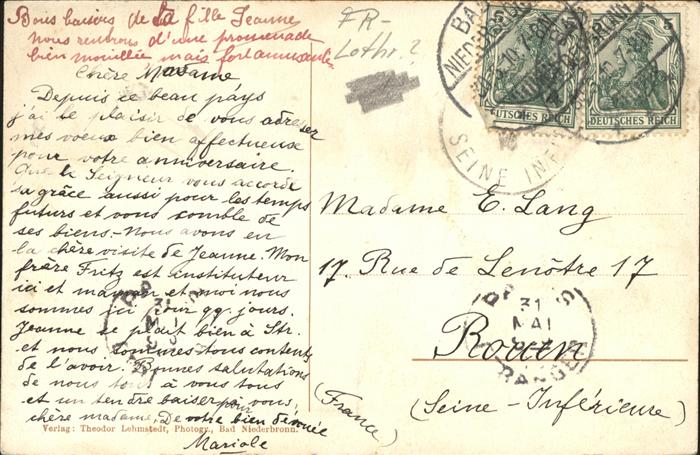 Bons baisers de ta fille Jeanne
nous rentrons d'une promenade
bien mouillée mais fort amusante.
FR-
Lothr.?
Chère Madame
Depuis ce beau pays
j'ai le plaisir de vous adresser
mes voeux bien affectueux
pour votre anniversaire.
Que le Seigneur vous accorde
sa grâce aussi pour les temps
futurs et vous comble de
ses biens. Nous avons eu
la chère visite de Jeanne. Mon
frère Fritz est instituteur
ici et maman et moi nous
sommes ici pour qq. jours.
Jeanne se plaît bien à Str.
et nous sommes tous contents
de l'avoir. Bonnes salutations
de nous tous à vous tous
et un tendre baiser pour vous,
chère madame, De votre bien dévouée
Mariole
Verlag: Theodor Lehmstedt, Photogr., Bad Niederbronn.
DEUTSCHES REICH
DEUTSCHES REICH
5
SEINE INF
Madame E. Lang
17. Rue de Lenôtre 17
Rouen
(Seine-Inférieure)
(France)
31
MAI